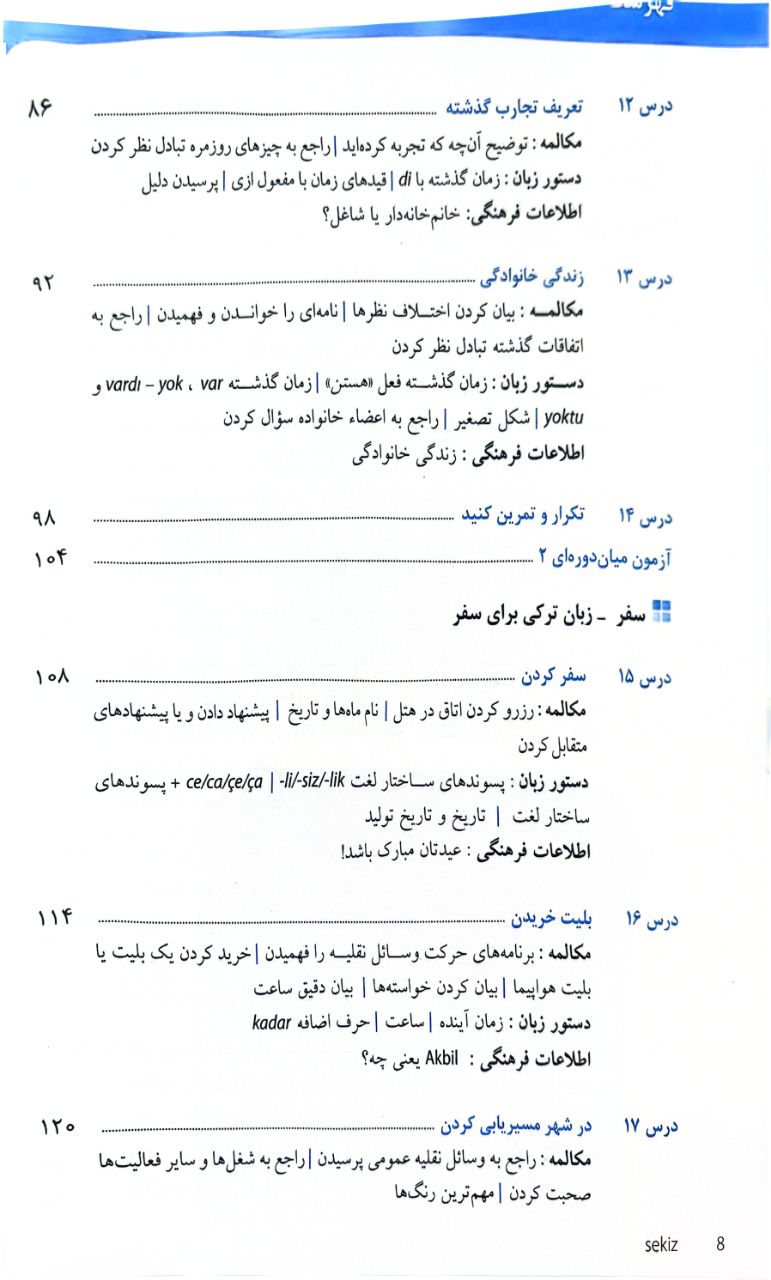 فهرست
درس ۱۲ تعریف تجارب گذشته ........ ۸۶
مکالمه : توضیح آن‌چه که تجربه کرده‌اید | راجع به چیزهای روزمره تبادل نظر کردن
دستور زبان : زمان گذشته با di | قیدهای زمان با مفعول ازی | پرسیدن دلیل
اطلاعات فرهنگی: خانم‌خانه‌دار یا شاغل؟
درس ۱۳ زندگی خانوادگی ........ ۹۲
مکالمـــه : بیان کردن اختـــلاف نظرها | نامه‌ای را خوانـــدن و فهمیدن | راجع به
اتفاقات گذشته تبادل نظر کردن
دســـتور زبان : زمان گذشـــته فعل «هستن» | زمان گذشـــته vardı – yok ، var و
yoktu | شکل تصغیر | راجع به اعضاء خانواده سؤال کردن
اطلاعات فرهنگی : زندگی خانوادگی
درس ۱۴ تکرار و تمرین کنید ........ ۹۸
آزمون میان‌دوره‌ای ۲ ........ ۱۰۴
سفر - زبان ترکی برای سفر
درس ۱۵ سفر کردن ........ ۱۰۸
مکالمه : رزرو کردن اتاق در هتل | نام ماه‌ها و تاریخ | پیشنهاد دادن و یا پیشنهادهای
متقابل کردن
دستور زبان : پسوندهای ســـاختار لغت -li/-siz/-lik | ce/ca/çe/ça + پســـوندهای
ساختار لغت | تاریخ و تاریخ تولید
اطلاعات فرهنگی : عیدتان مبارک باشد!
درس ۱۶ بلیت خریدن ........ ۱۱۴
مکالمه : برنامه‌های حرکت وســـائل نقلیـــه را فهمیدن | خرید کردن یک بلیت یا
بلیت هواپیما | بیان کردن خواسته‌ها | بیان دقیق ساعت
دستور زبان : زمان آینده | ساعت | حرف اضافه kadar
اطلاعات فرهنگی : Akbil یعنی چه؟
درس ۱۷ در شهر مسیریابی کردن ........ ۱۲۰
مکالمه : راجع به وسائل نقلیه عمومی پرسیدن | راجع به شغل‌ها و سایر فعالیت‌ها
صحبت کردن | مهم‌ترین رنگ‌ها
sekiz 8